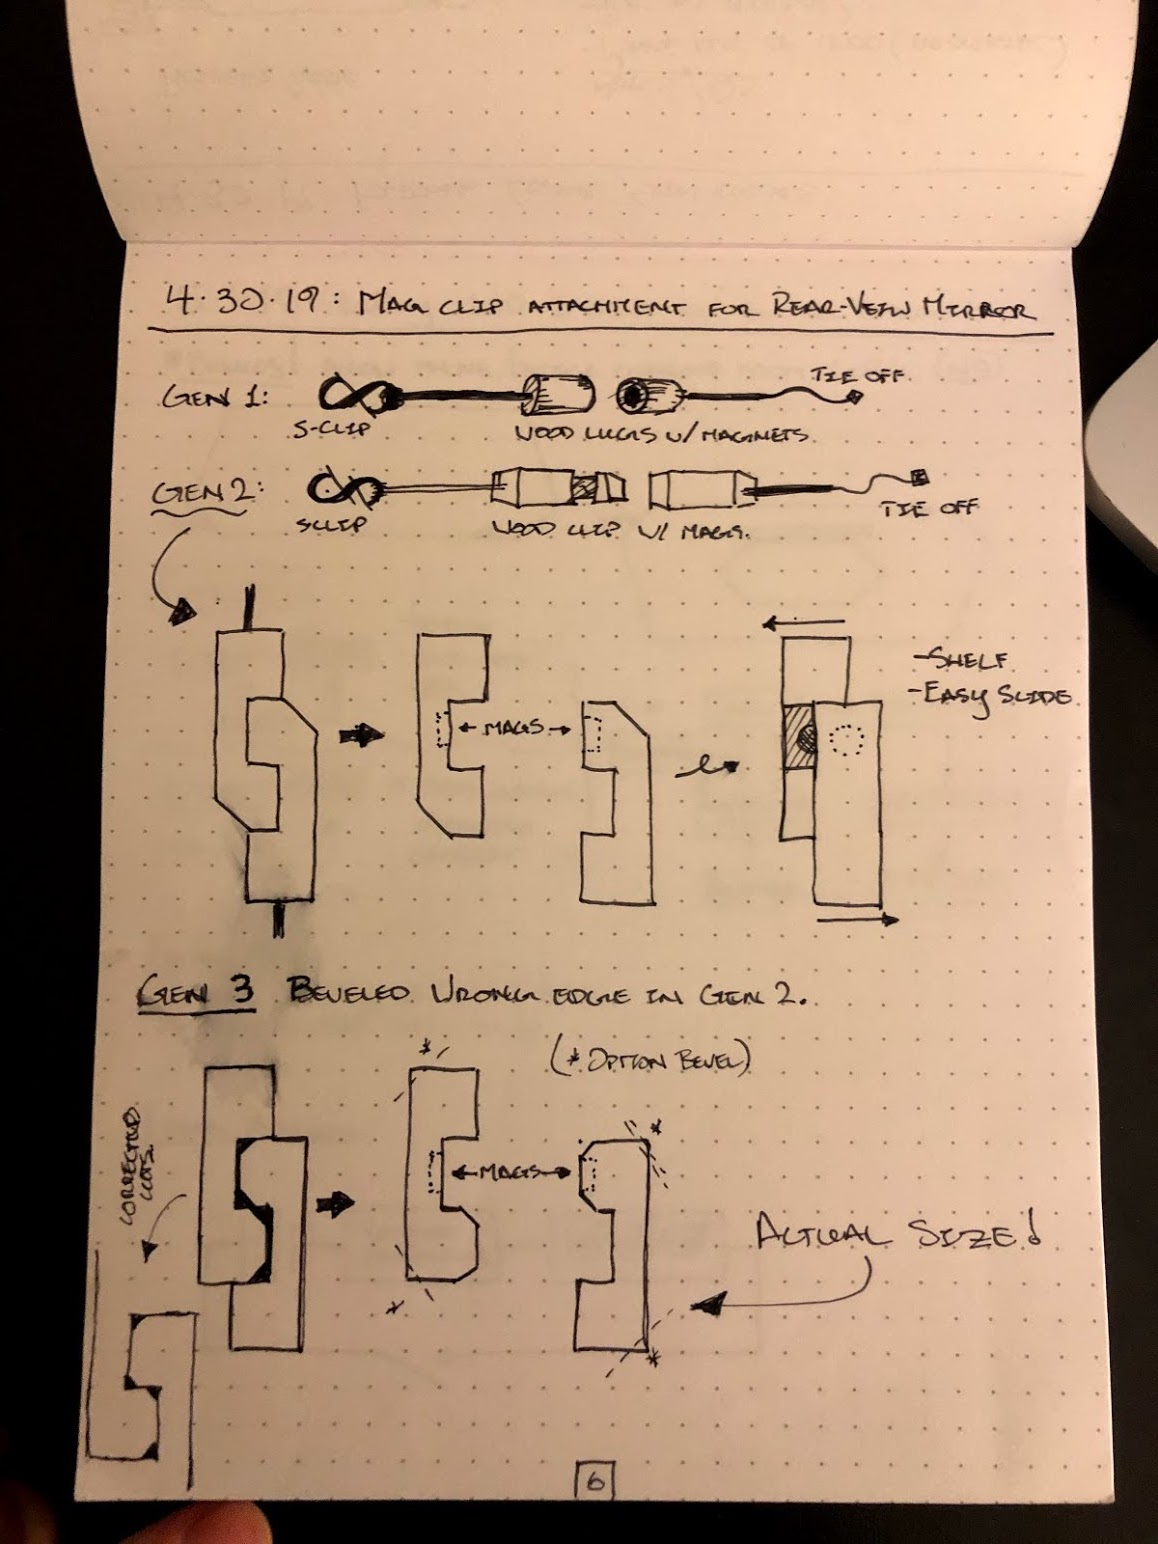 4.30.19: MAG CLIP ATTACHMENT FOR REAR-VIEW MIRROR
GEN 1:
TIE OFF
S-CLIP
WOOD LUGS W/MAGNETS
GEN 2:
SCLIP
WOOD CLIP W/ MAGS.
TIE OFF
-SHELF
-EASY SLIDE
←MAGS→
GEN 3 BEVELED WRONG EDGE IN GEN 2.
(* OPTION BEVEL)
CORRECTED
CUTS.
←MAGS→
ACTUAL SIZE!
6